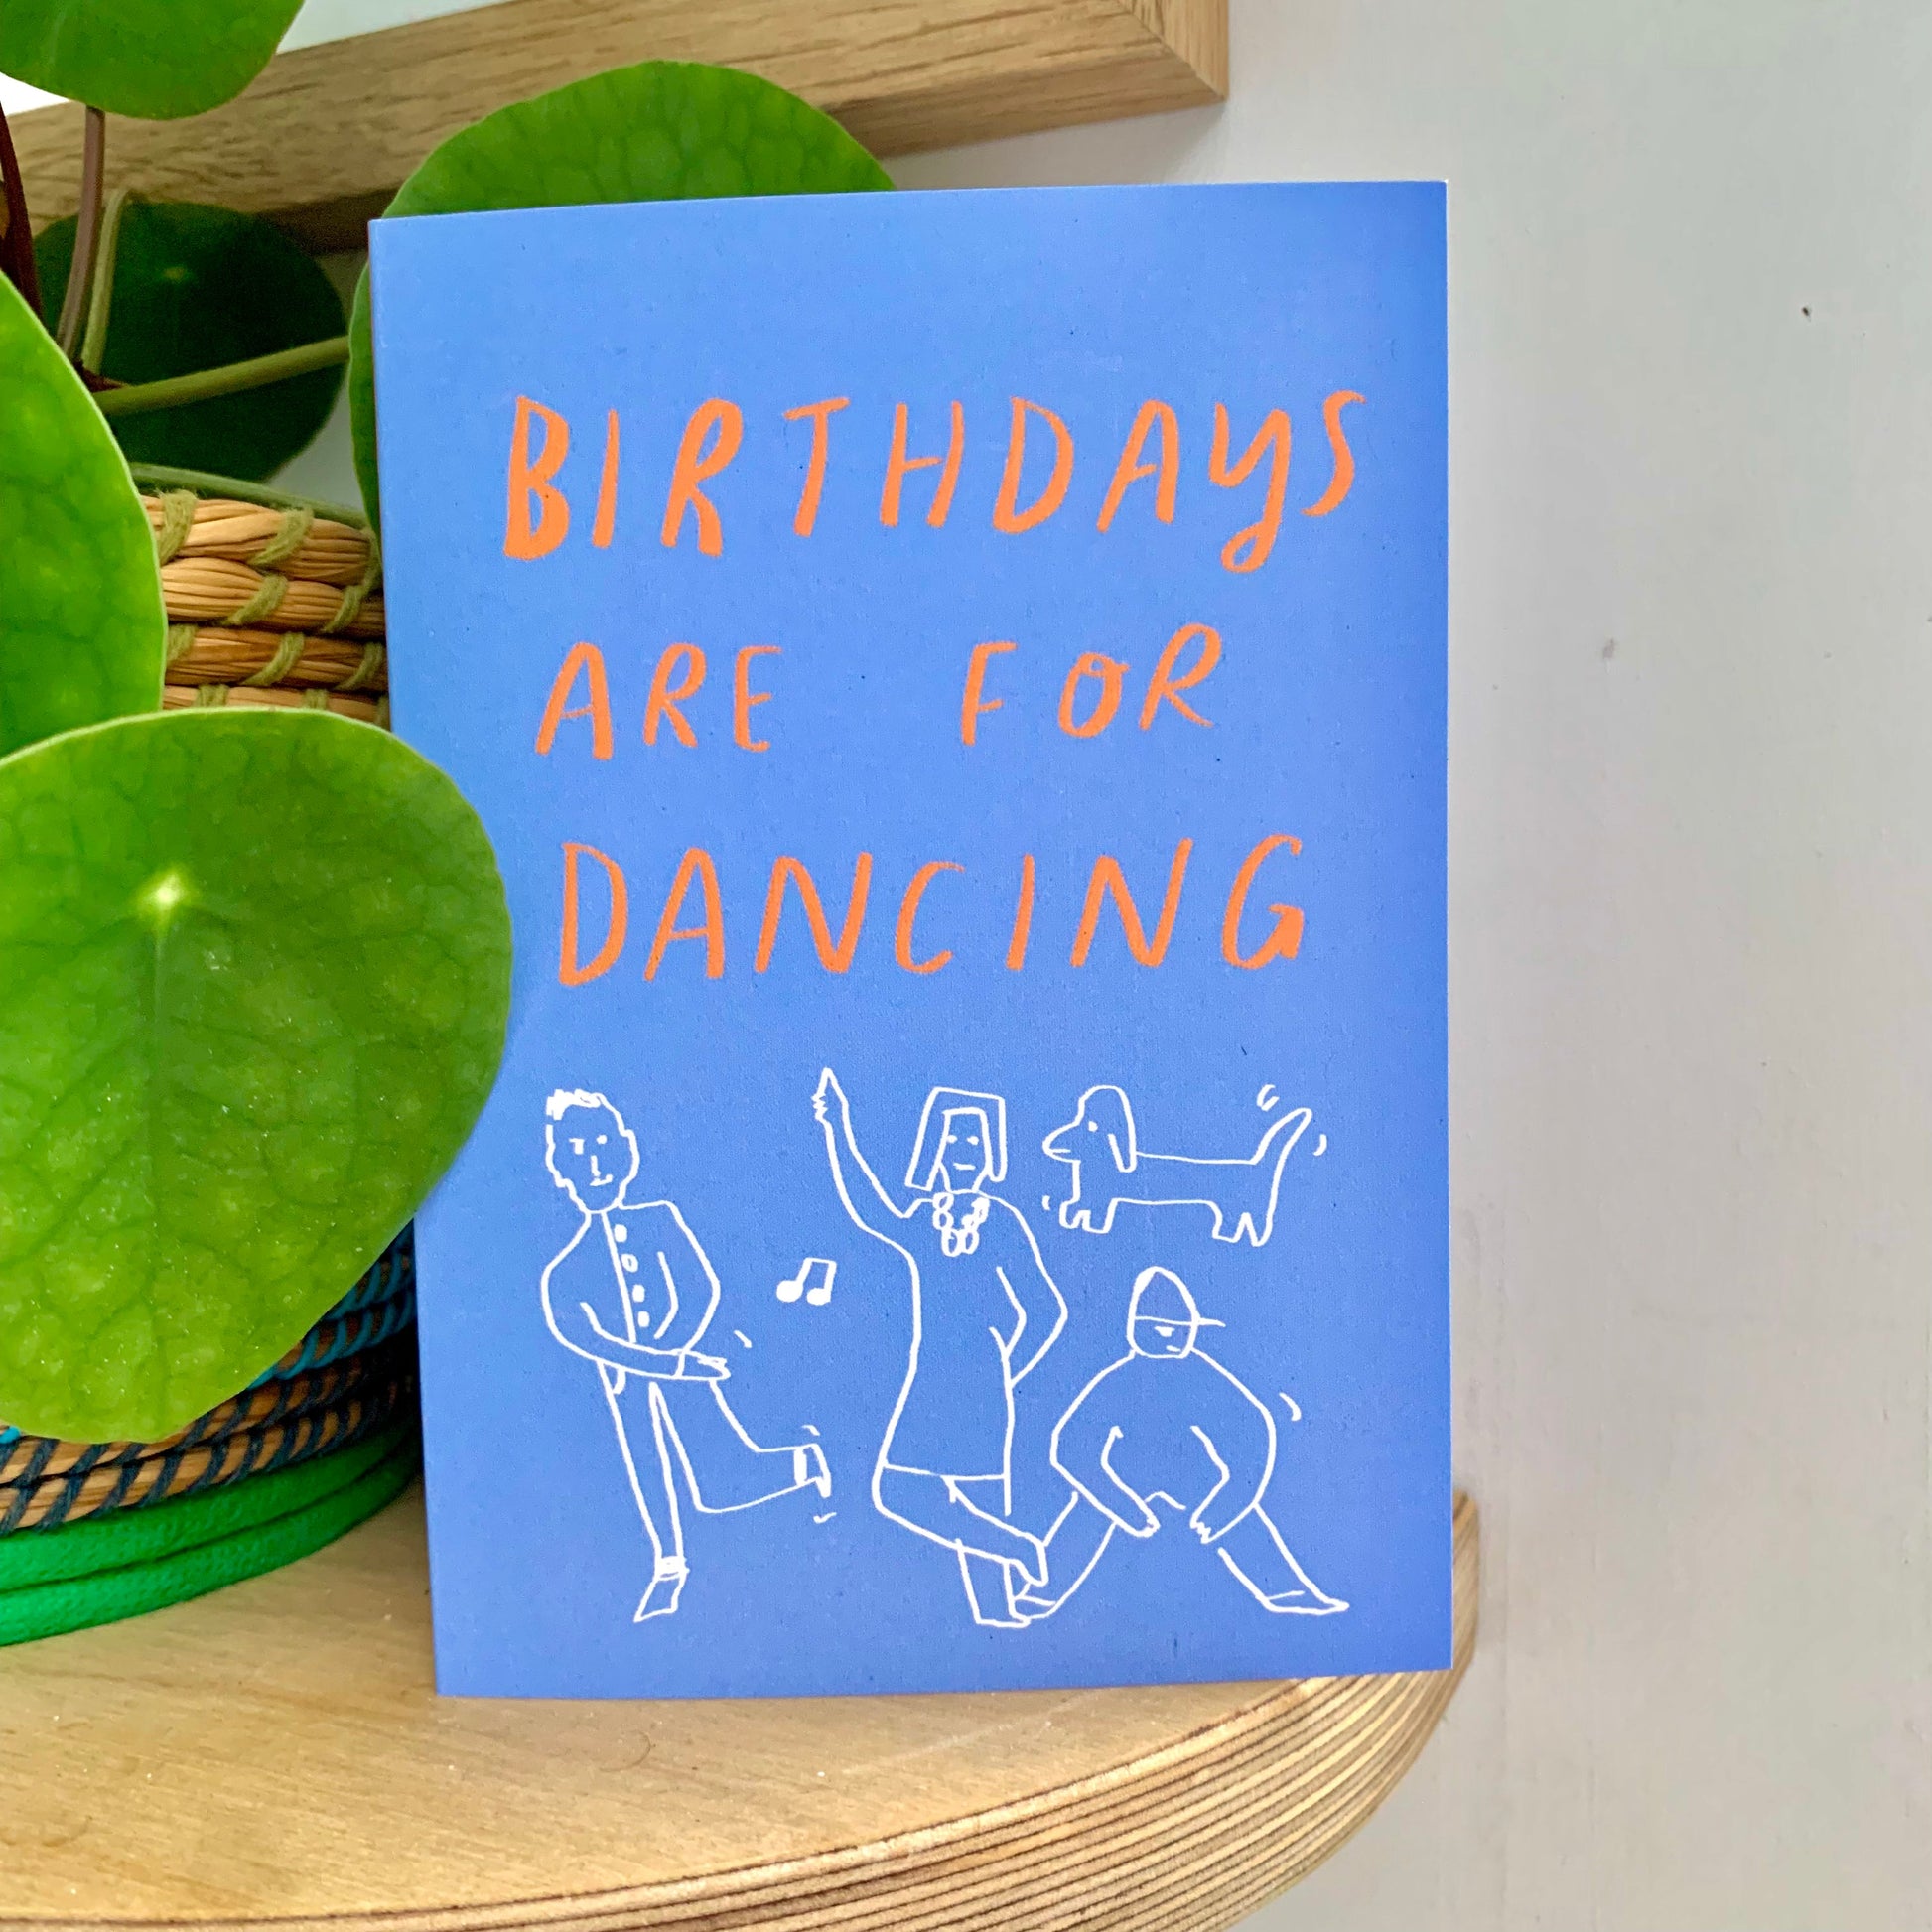 BIRTHDAYS
ARE FOR
DANCING